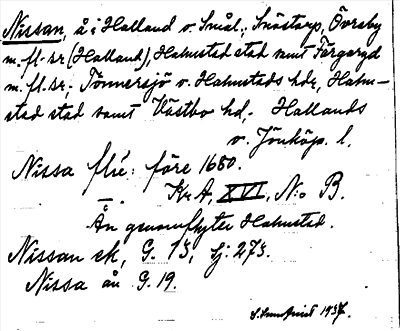 Nissan, å i Halland o. Smål., Snöstorp, Övraby
m.fl. sr (Halland), Halmstad stad samt Färgaryd
m.fl. sr; Tönnersjö o. Halmstads hdr, Halm-
stad stad samt Västbo hd. Hallands
o. Jönköp. l.
Nissa flu: före 1680.
Kr A, XVI, N:o B.
Ån genomflyter Halmstad.
Nissan ek, G. 13, Lj. 273.
Nissa ån G. 19.
1937.